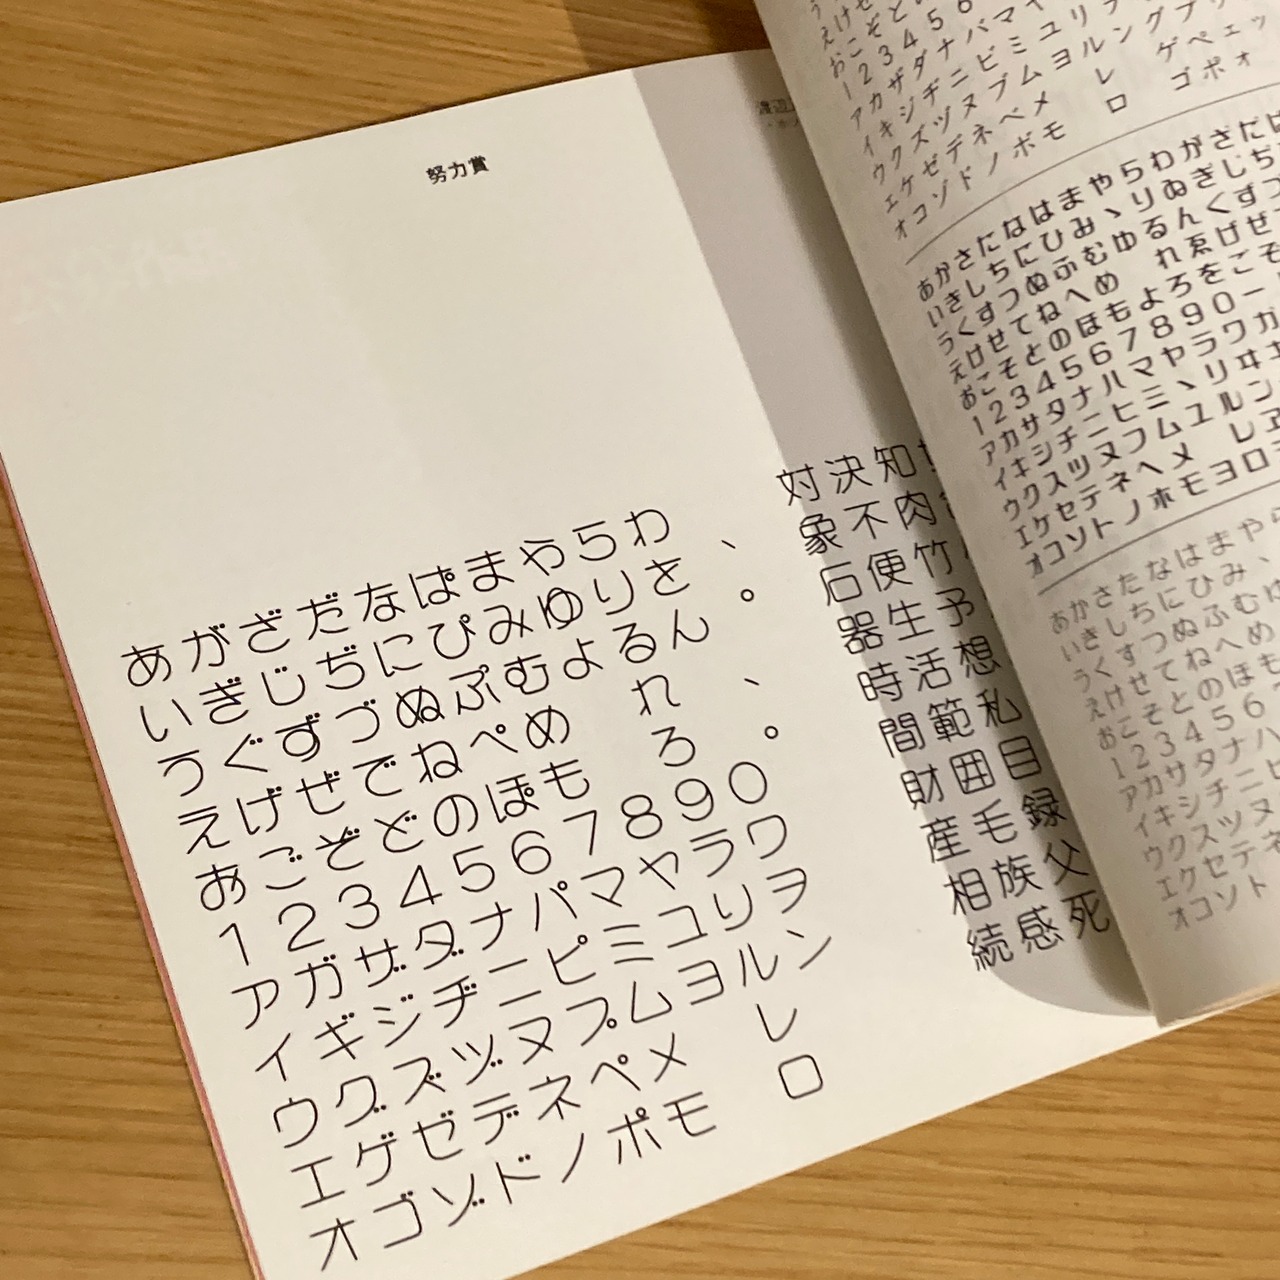 努力賞
渡辺
あがざだなぱまやらわ、
いぎじぢにぴみゆりを。
うぐずづぬぷむよるん
えげぜでねぺめ れ、
おごぞどのぽも ろ。
1234567890
アガザダナパマヤラワ
イギジヂニピミユリヲ
ウグズヅヌプムヨルン
エゲゼデネペメ レ
オゴゾドノポモ ロ
対決知
象不肉
石便竹
器生予
時活想
間範私
財囲目
産毛録
相族父
続感死
おこそとの
123456
アカサダナパマ
イキシヂニピミユリ
ウクスヅヌプムヨルング
エケゼデネペメ レ ゲペェッ
オコゾドノボモ ロ ゴポォ
あかさたなはまやらわがざだば
いきしちにひみ、りゐぎじぢ
うくすつぬふむゆるんぐず
えけせてねへめ れゑげぜ
おこそとのほもよろをごぞ
1234567890ー
アカサタナハマヤラワガ
イキシチニヒミ、リヰギ
ウクスツヌフムユルン
エケセテネヘメ レヱ
オコソトノホモヨロ
あかさたなはまや
いきしちにひみ、
うくすつぬふむゆ
えけせてねへめ
おこそとのほも
1234567
アカサタナハ
イキシチニヒ
ウクスツヌ
エケセテネ
オコソト